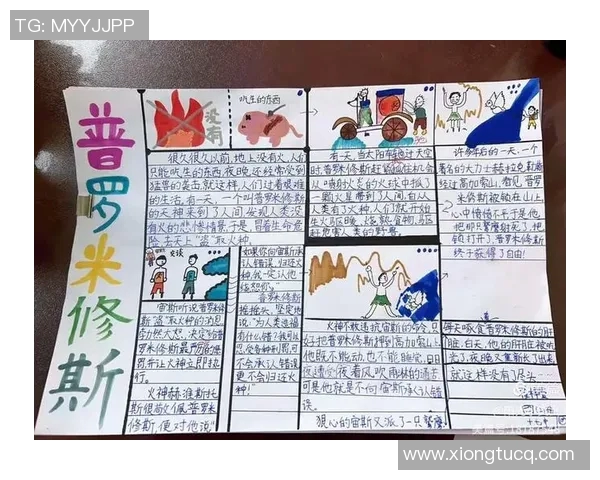 TG: MYYJJPP
普罗米修斯
没有
吃生的东西
很久很久以前,地上没有火,人们
只能吃生的东西,夜晚还经常受到
猛兽的袭击,就这样,人们过着艰难
的生活。有一天,一个叫普罗米修斯
的天神来到了人间,发现人类没
有火的悲惨情景,于是,冒着生命危
险,去天上“盗”取火种。
有一天,当太阳车驰过天空
时,普罗米修斯
从
一颗火星,带到了人间,自从
人类有了火种,人们就开始
生火取暖、烧熟食物、驱
赶危害人类的野兽。
许多年后的一天,一个
著名的大力士赫拉克勒斯
经过高加索山,看见普罗
米修斯被锁在山上,
心中愤愤不平,于是他
把
锁打开了,普罗米修斯
终于获得了自由!
交谈
宙斯听说普罗米
修斯“盗”取火种的消息,
勃然大怒,决定给
普罗米修斯最严厉的惩
罚,并让火神立即执
行。
火神赫淮斯托
斯很敬佩普罗米
修斯,便对他说:“
如果你向宙斯
承认错误,归还火
种,我一定让他
饶恕你。”
普罗米修斯
摇摇头,坚定地
说:“为人类造福,
有什么错?我可以
忍受各种刑罚,可
不会承认错误,
更不会归还火
种!”
火神不敢违抗宙斯的命令,只
好把普罗米修斯押到高加索山上。
他既不能动,也不能睡觉,日日
夜夜遭受着风吹雨淋的痛苦,
可是他就是不向宙斯承认错
误。
狠心的宙斯又派了一只鹫鹰
每天啄食普罗米修斯的肝
脏,白天,他的肝脏被吃
光了,夜晚又重新长了出来,
就这样没有尽头……
www.xiongtucq.com